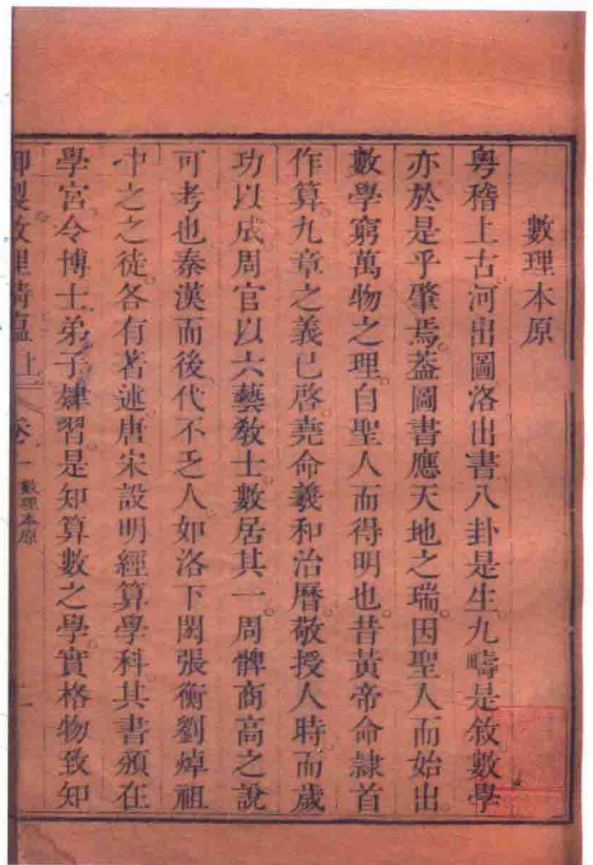 數理本原
粤稽上古河出圖洛出書八卦是生九疇是敘數學
亦於是乎肇焉。葢圖書應天地之瑞。因聖人而始出。
數學窮萬物之理。自聖人而得明也。昔黃帝命隷首
作算。九章之義已啓。堯命羲和治曆。敬授人時。而歲
功以成。周官以六藝敎士。數居其一。周髀商高之說
可考也。秦漢而後。代不乏人。如洛下閎張衡劉焯祖
沖之之徒。各有著述。唐宋設明經算學科。其書頒在
學宮。令博士弟子肄習。是知算數之學。實格物致知
御製數理精蘊 上 卷一 數理本原